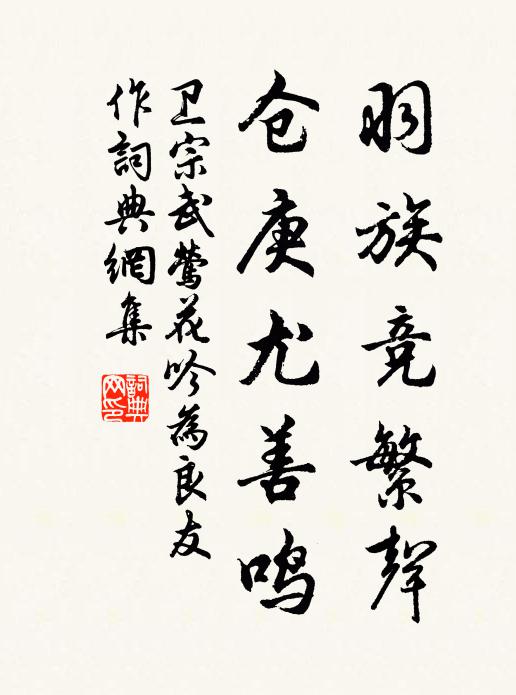 羽族竞繁聲
仓庚尤善鸣
卫宗武莺花吟為良友
作詞典網集
詞典网印